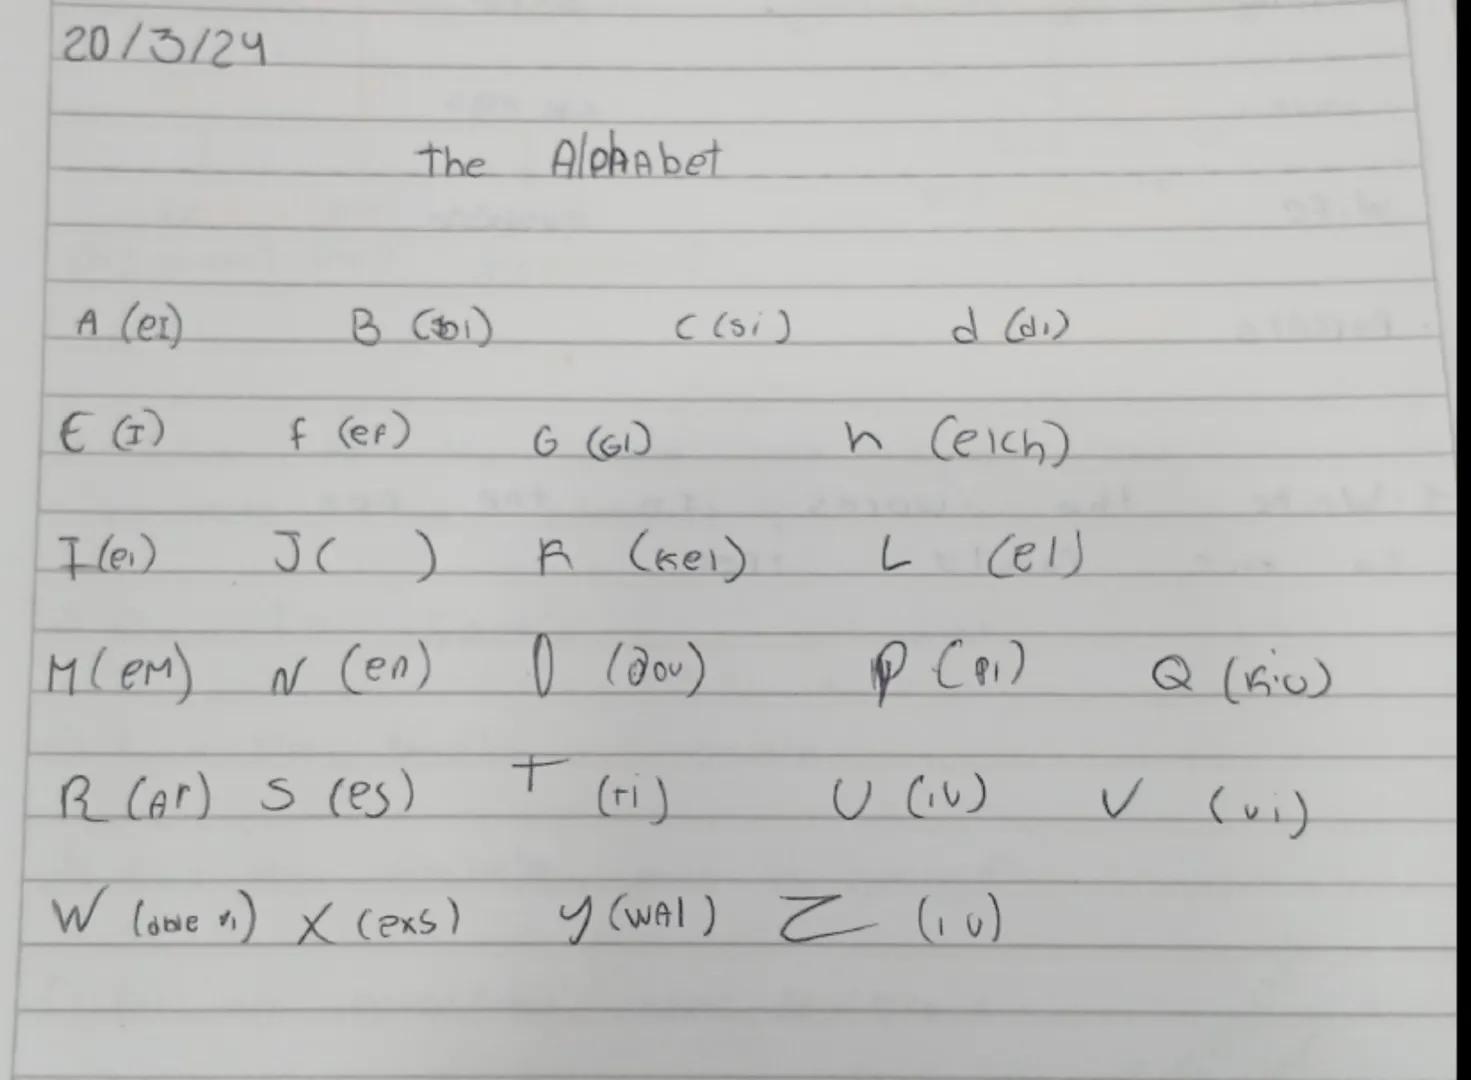 20/3/24
the AlphAbet
A (eI) B (bi) C (si) d (di)
E (I) f (ef) G (GI) h (eich)
I (ei) J ( ) K (kei) L (el)
M (eM) N (en) O (oou) P (pi) Q (kiu)
R (Ar) S (es) T (ti) U (iu) V (vi)
W X (exs) y (WAI) Z (iu)